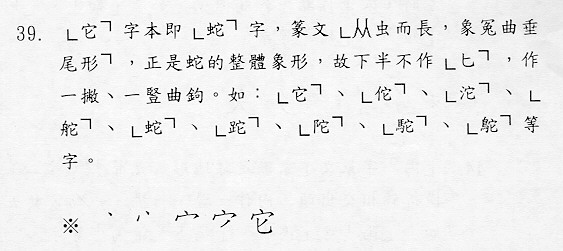 39. ﹂它﹁字本即﹂蛇﹁字，篆文﹂从虫而長，象冤曲垂
尾形﹁，正是蛇的整體象形，故下半不作﹂匕﹁，作
一撇、一豎曲鉤。如：﹂它﹁、﹂佗﹁、﹂沱﹁、﹂
舵﹁、﹂蛇﹁、﹂跎﹁、﹂陀﹁、﹂駝﹁、﹂鴕﹁等
字。
※ 丶 丷 宀 它